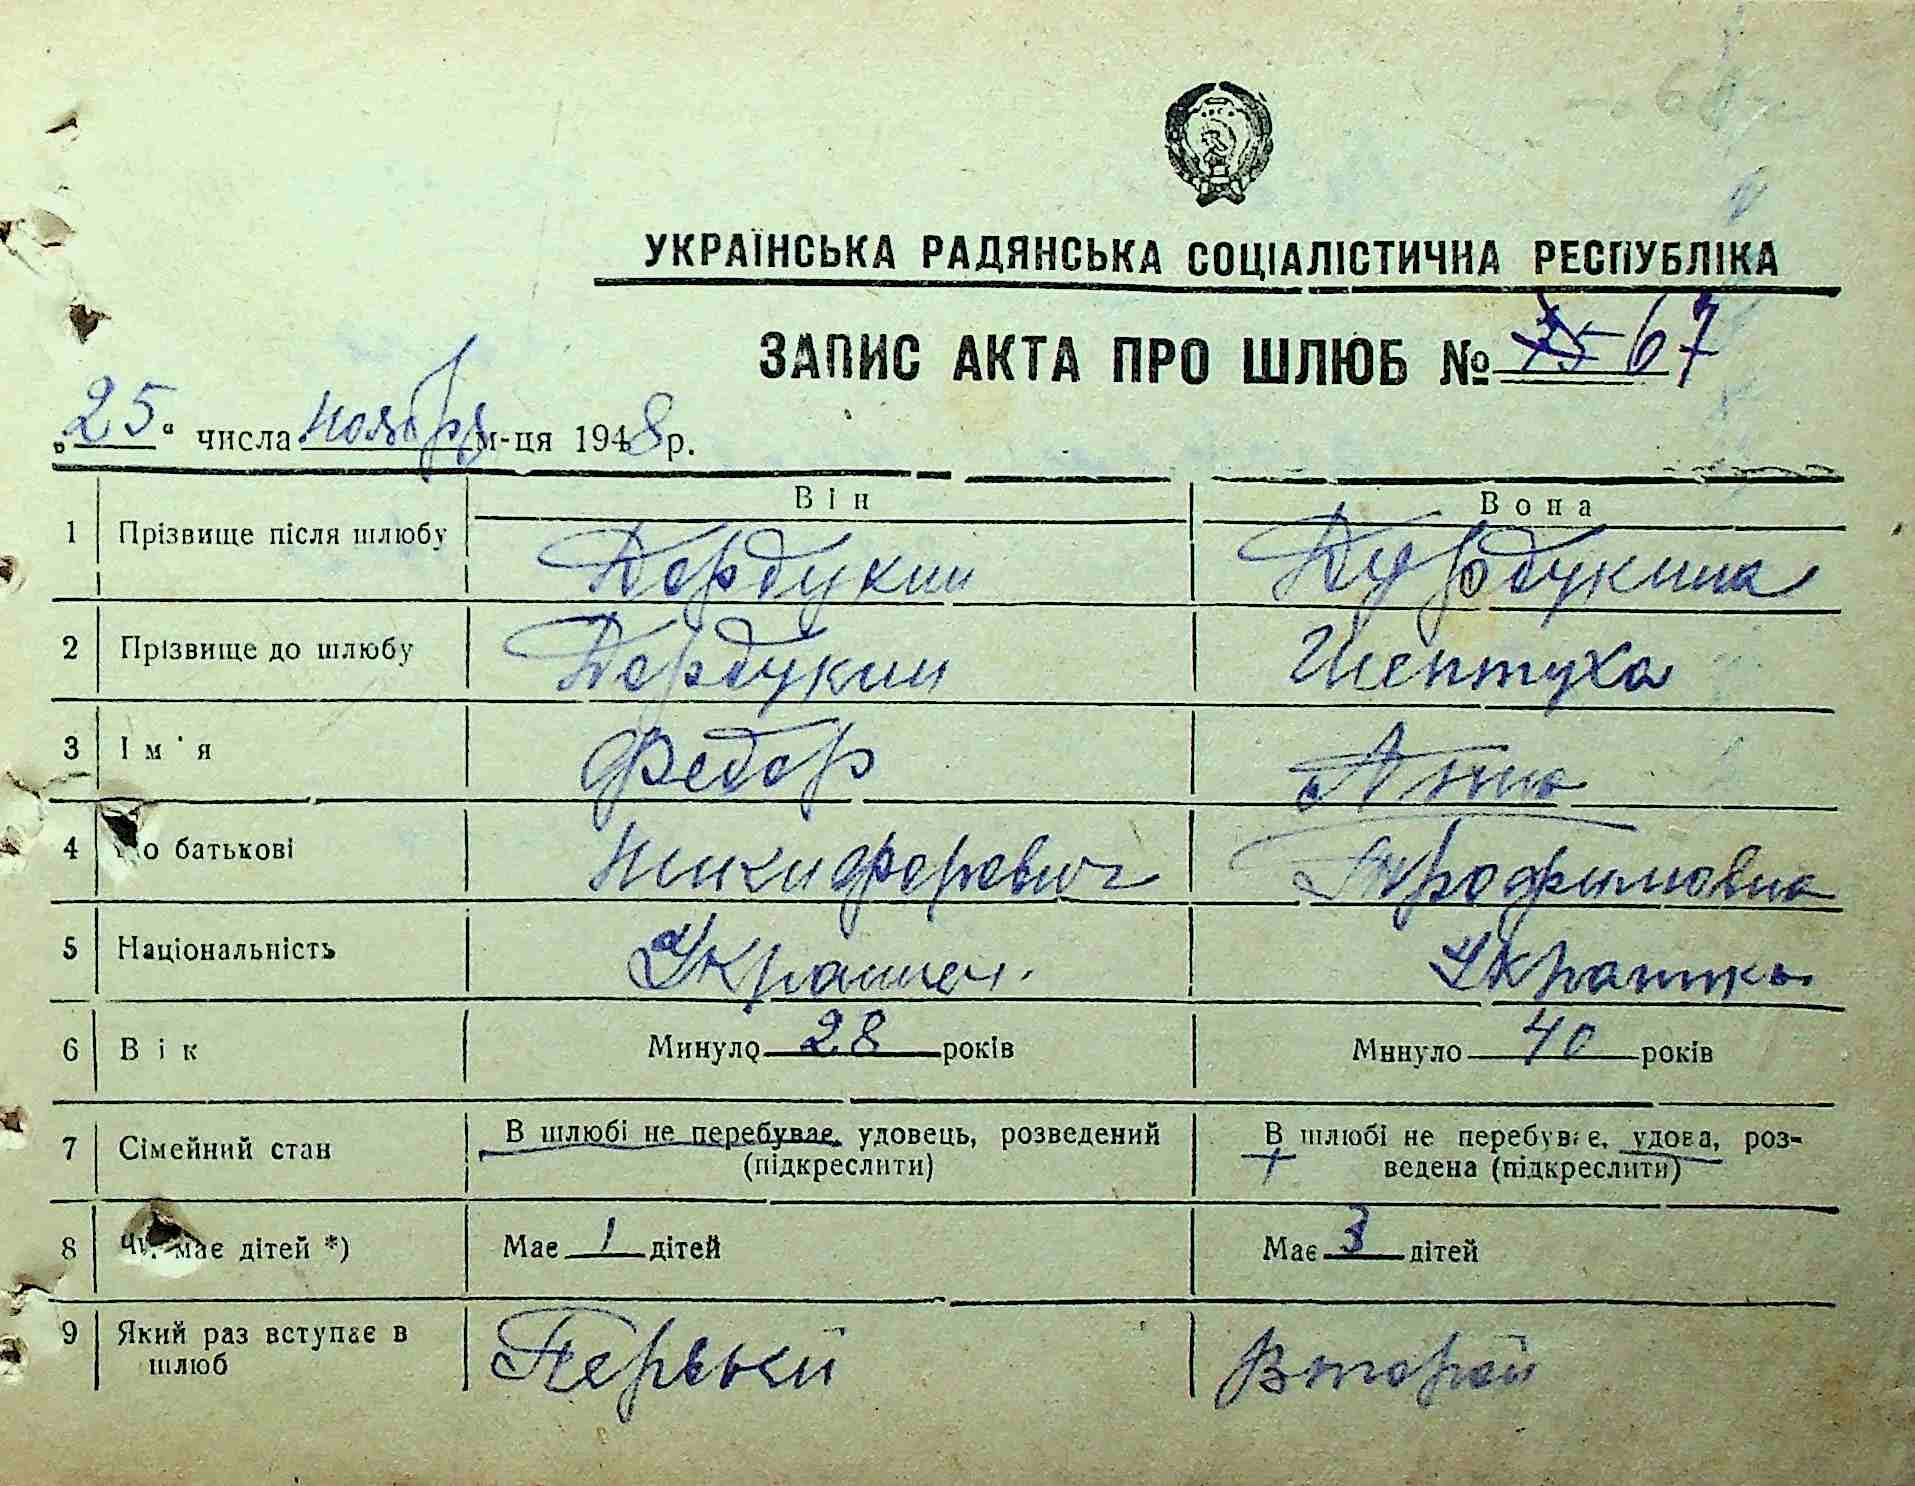 УКРАЇНСЬКА РАДЯНСЬКА СОЦІАЛІСТИЧНА РЕСПУБЛІКА
ЗАПИС АКТА ПРО ШЛЮБ № 67
„25“ числа ноября м-ця 1948 р.
Він Вона
1 Прізвище після шлюбу Дордукин Дурдукина
2 Прізвище до шлюбу Дордукин Шептуха
3 Ім'я Федор Анна
4 По батькові Никифорович Трофимовна
5 Національність Украинец. Украинка
6 Вік Минуло 28 років Минуло 40 років
7 Сімейний стан В шлюбі не перебуває, удовець, розведений (підкреслити) В шлюбі не перебуває, удова, роз-
ведена (підкреслити)
8 Чи має дітей *) Має 1 дітей Має 3 дітей
9 Який раз вступає в шлюб Первый Второй